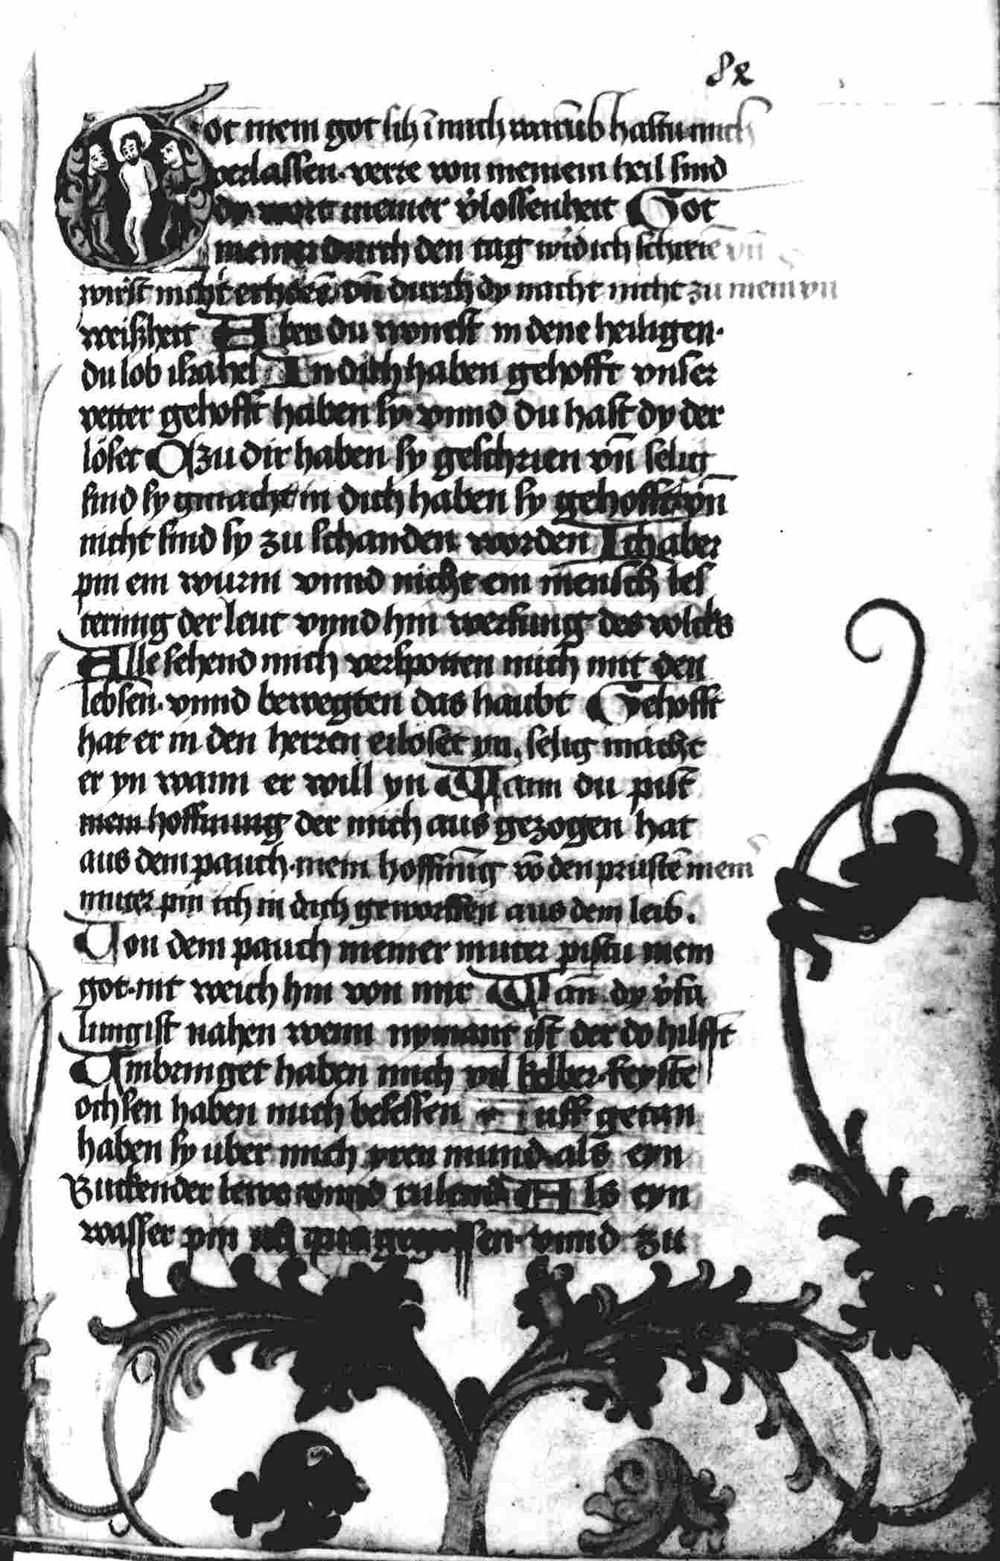 82
Got mein got sih ī mich warūb hastu mich
verlassen · verre von meinem heil sind
dy wort meiner v̓lossenheit Got
meiner durch den tag wird ich schreiē vn̄
wirst nicht erhorē vn̄ durch dy nacht nicht zu mein vn
weisheit Aber du wonest in dene heiligen ·
du lob israhel In dich haben gehofft vnser
vetter gehofft haben sy vnnd du hast dy der
löset O zu dir haben sy geschrien vn̄ selig
sind sy gmacht in dich haben sy gehofft vn̄
nicht sind sy zu schanden worden Ich aber
pin ein wurm vnnd nicht ein mensch les
terung der leut vnnd hin werfung des volcks
Alle sehend mich verspotten mich mit den
lebsen · vnnd bewegten das haubt Gehofft
hat er in den herren erloset yn, selig macht
er yn wann er will yn Wann du pist
mein hoffnung der mich aus gezogen hat
aus dem pauch · mein hoffnūg vō den prustē meinˀ
muter pin ich in dich geworffen aus dem leib .
Von dem pauch meiner muter pistu mein
got · nit weich hin von mir Wan̄ dy v̓sū
lung ist nahen wenn nymant ist der do hilfft
Umbringet haben mich vil kelber · feyste
ochsen haben mich besessen Auff getan
haben sy uber mich yren mund als eyn
Zuckender lewe vnnd rulend Als eyn
wasser pin ich aus gegossen · vnnd zu